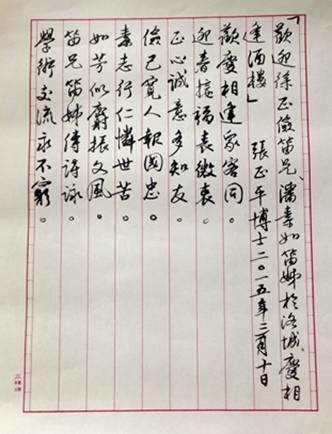 「歡迎徐正儉笛兄、潘素如笛姊於洛城慶相
逢酒樓」 張正平博士二〇一五年三月十日
歡慶相逢眾客同。
迎春接福表微衷。
正心誠意多知友。
儉己寬人報國忠。
素志行仁憐世苦。
如芳似麝振文風。
笛兄笛姊傳詩詠。
學術交流永不窮。